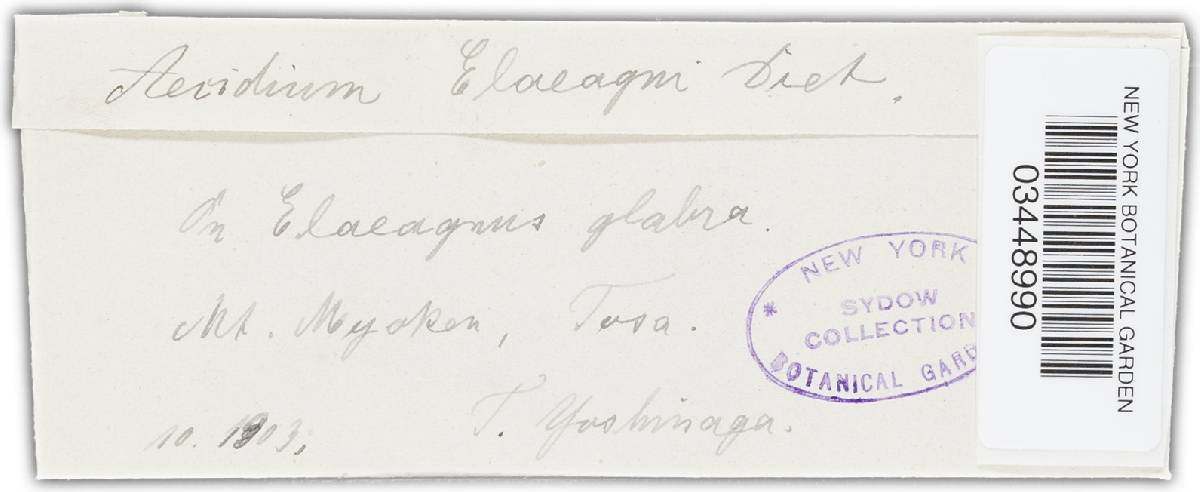 Aecidium Elaeagni Diet.
On Elaeagnus glabra.
Mt. Myoken, Tosa.
10. 1903,
T. Yoshinaga.
* NEW YORK
SYDOW
COLLECTION
BOTANICAL GARD
NEW YORK BOTANICAL GARDEN
03448990